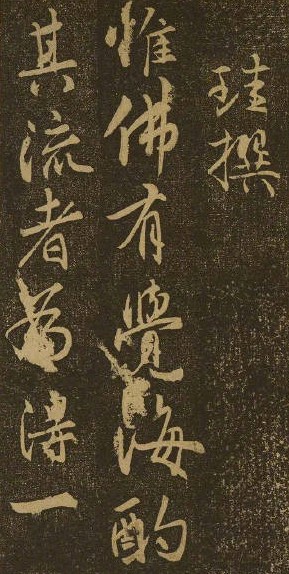 珪撰
惟佛有覺海酌
其流者得一